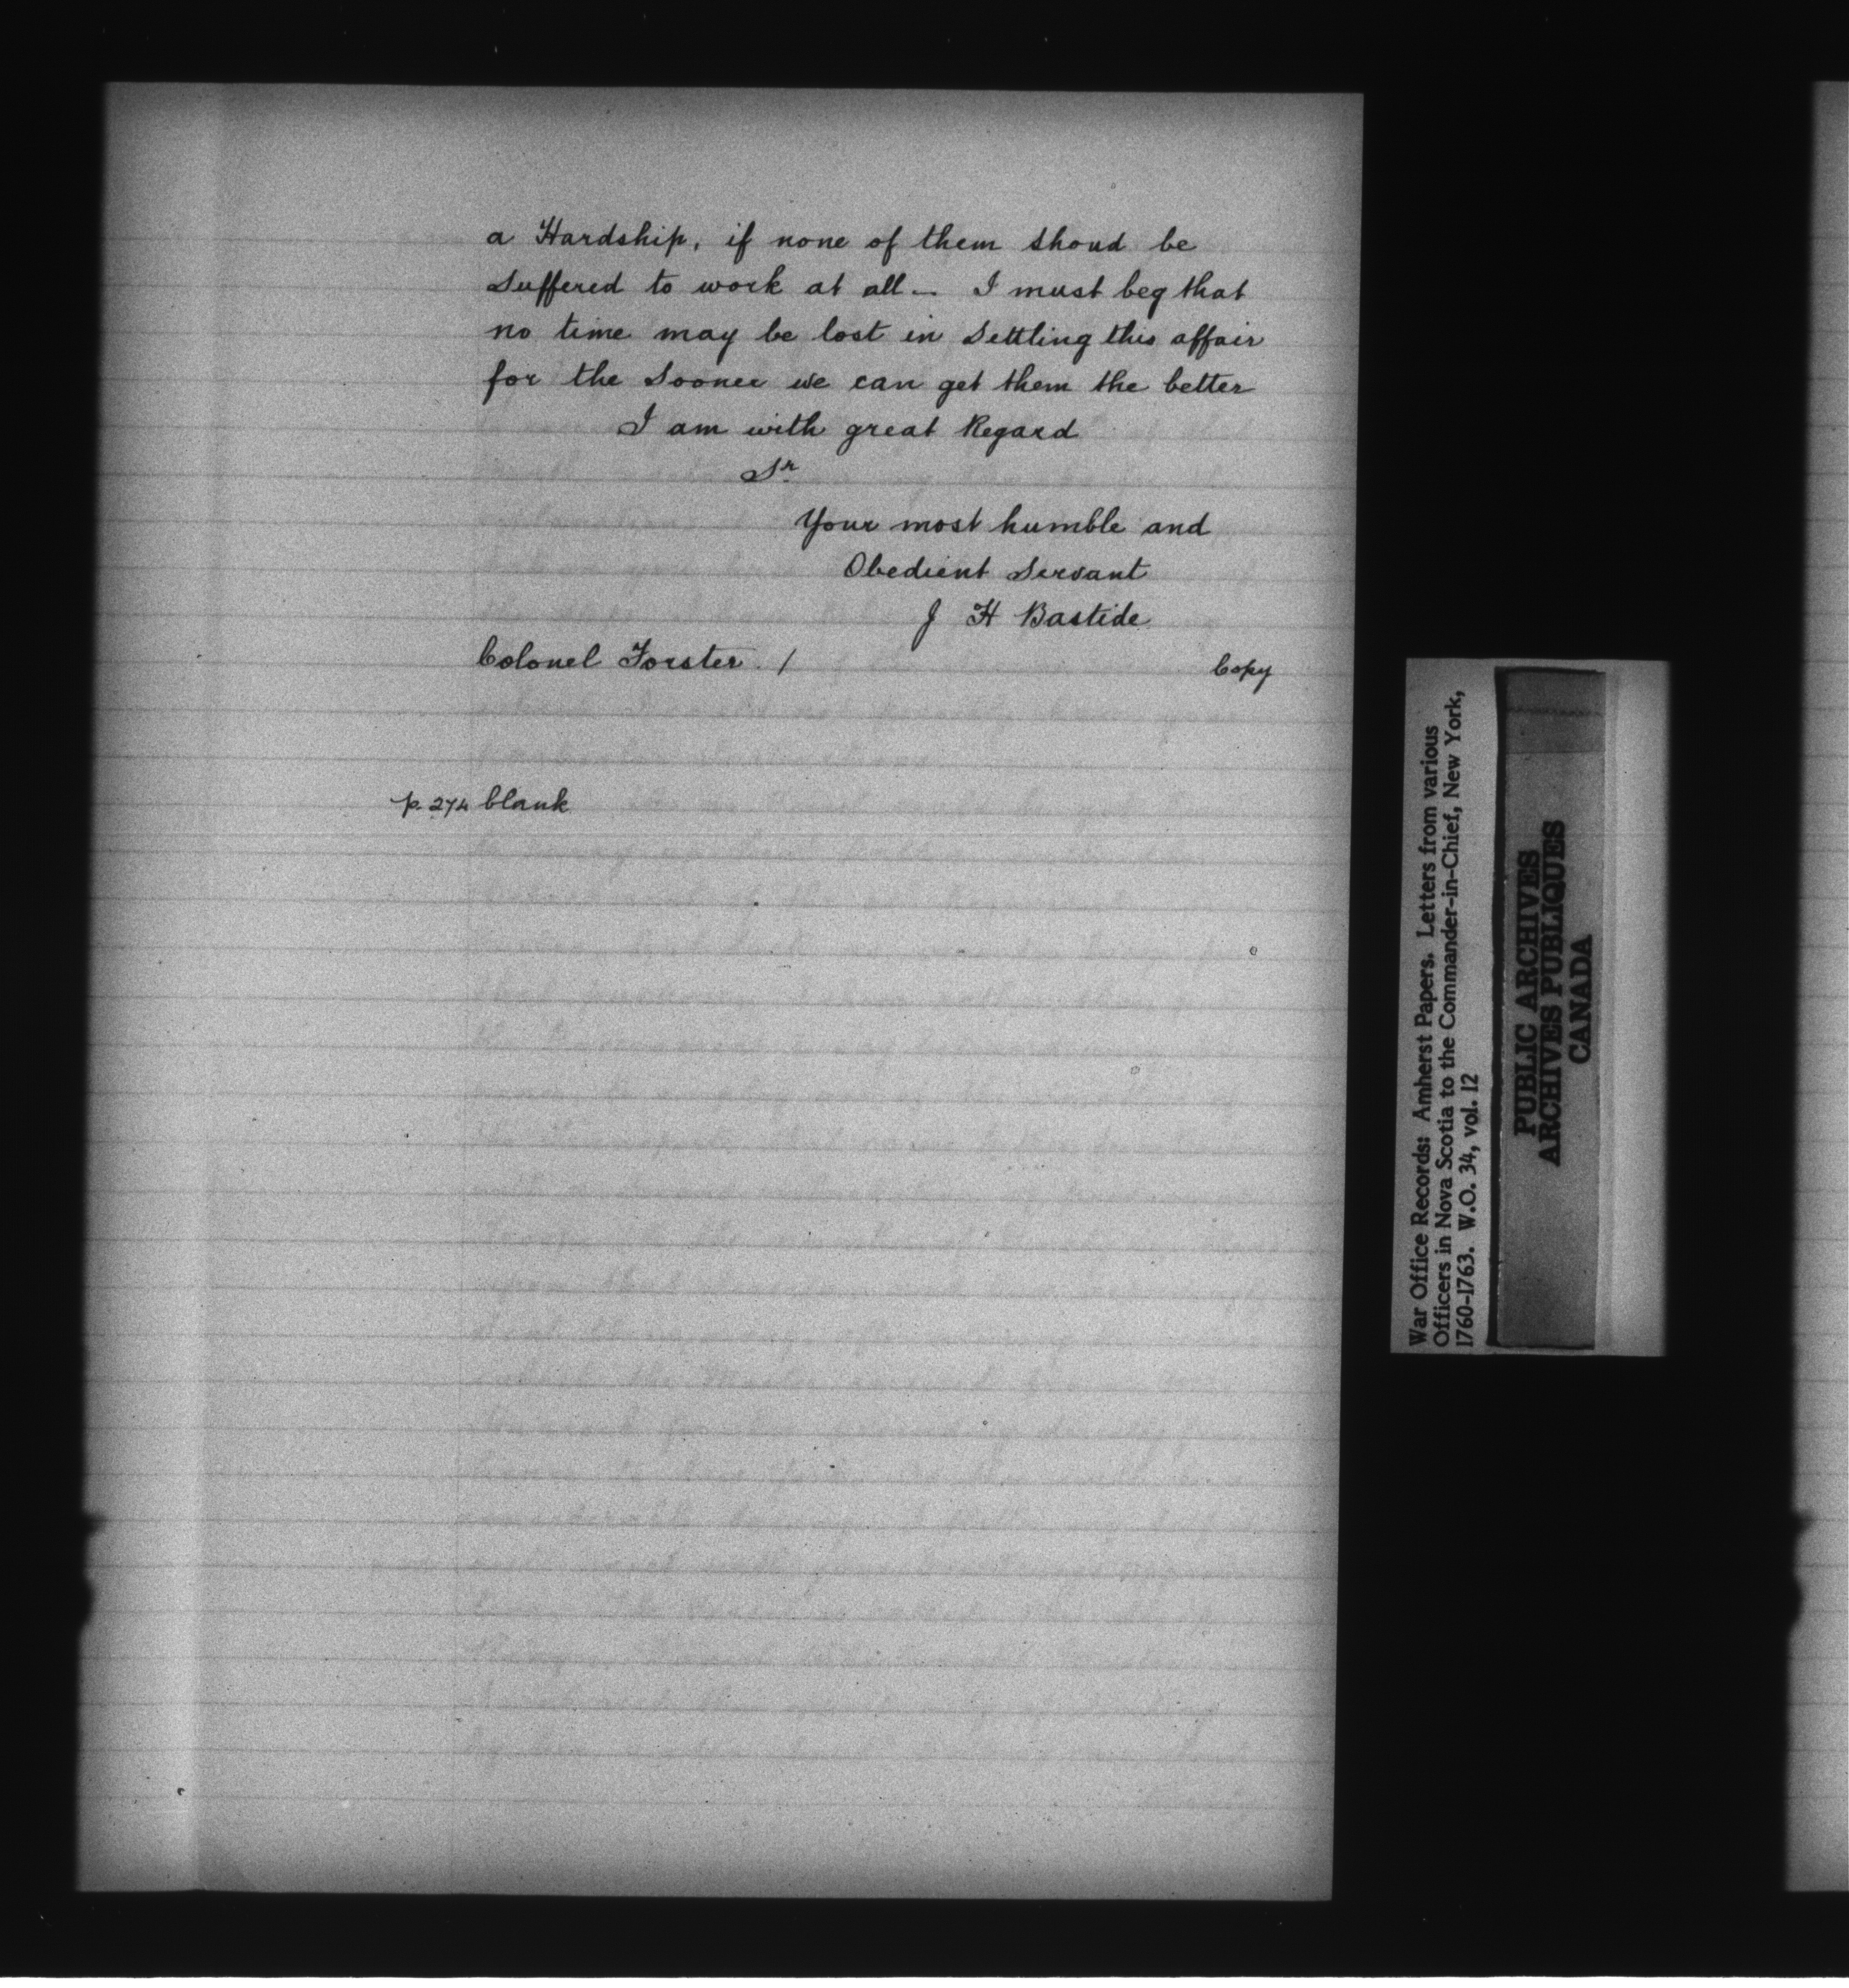 a Hardship, if none of them shoud be
Suffered to work at all — I must beg that
no time may be lost in Settling this affair
for the Sooner we can get them the better
I am with great Regard
Sr
Your most humble and
Obedient Servant
J H Bastide
Colonel Forster. /
Copy
p. 274 blank
War Office Records: Amherst Papers. Letters from various
Officers in Nova Scotia to the Commander-in-Chief, New York,
1760-1763. W.O. 34, vol. 12
PUBLIC ARCHIVES
ARCHIVES PUBLIQUES
CANADA